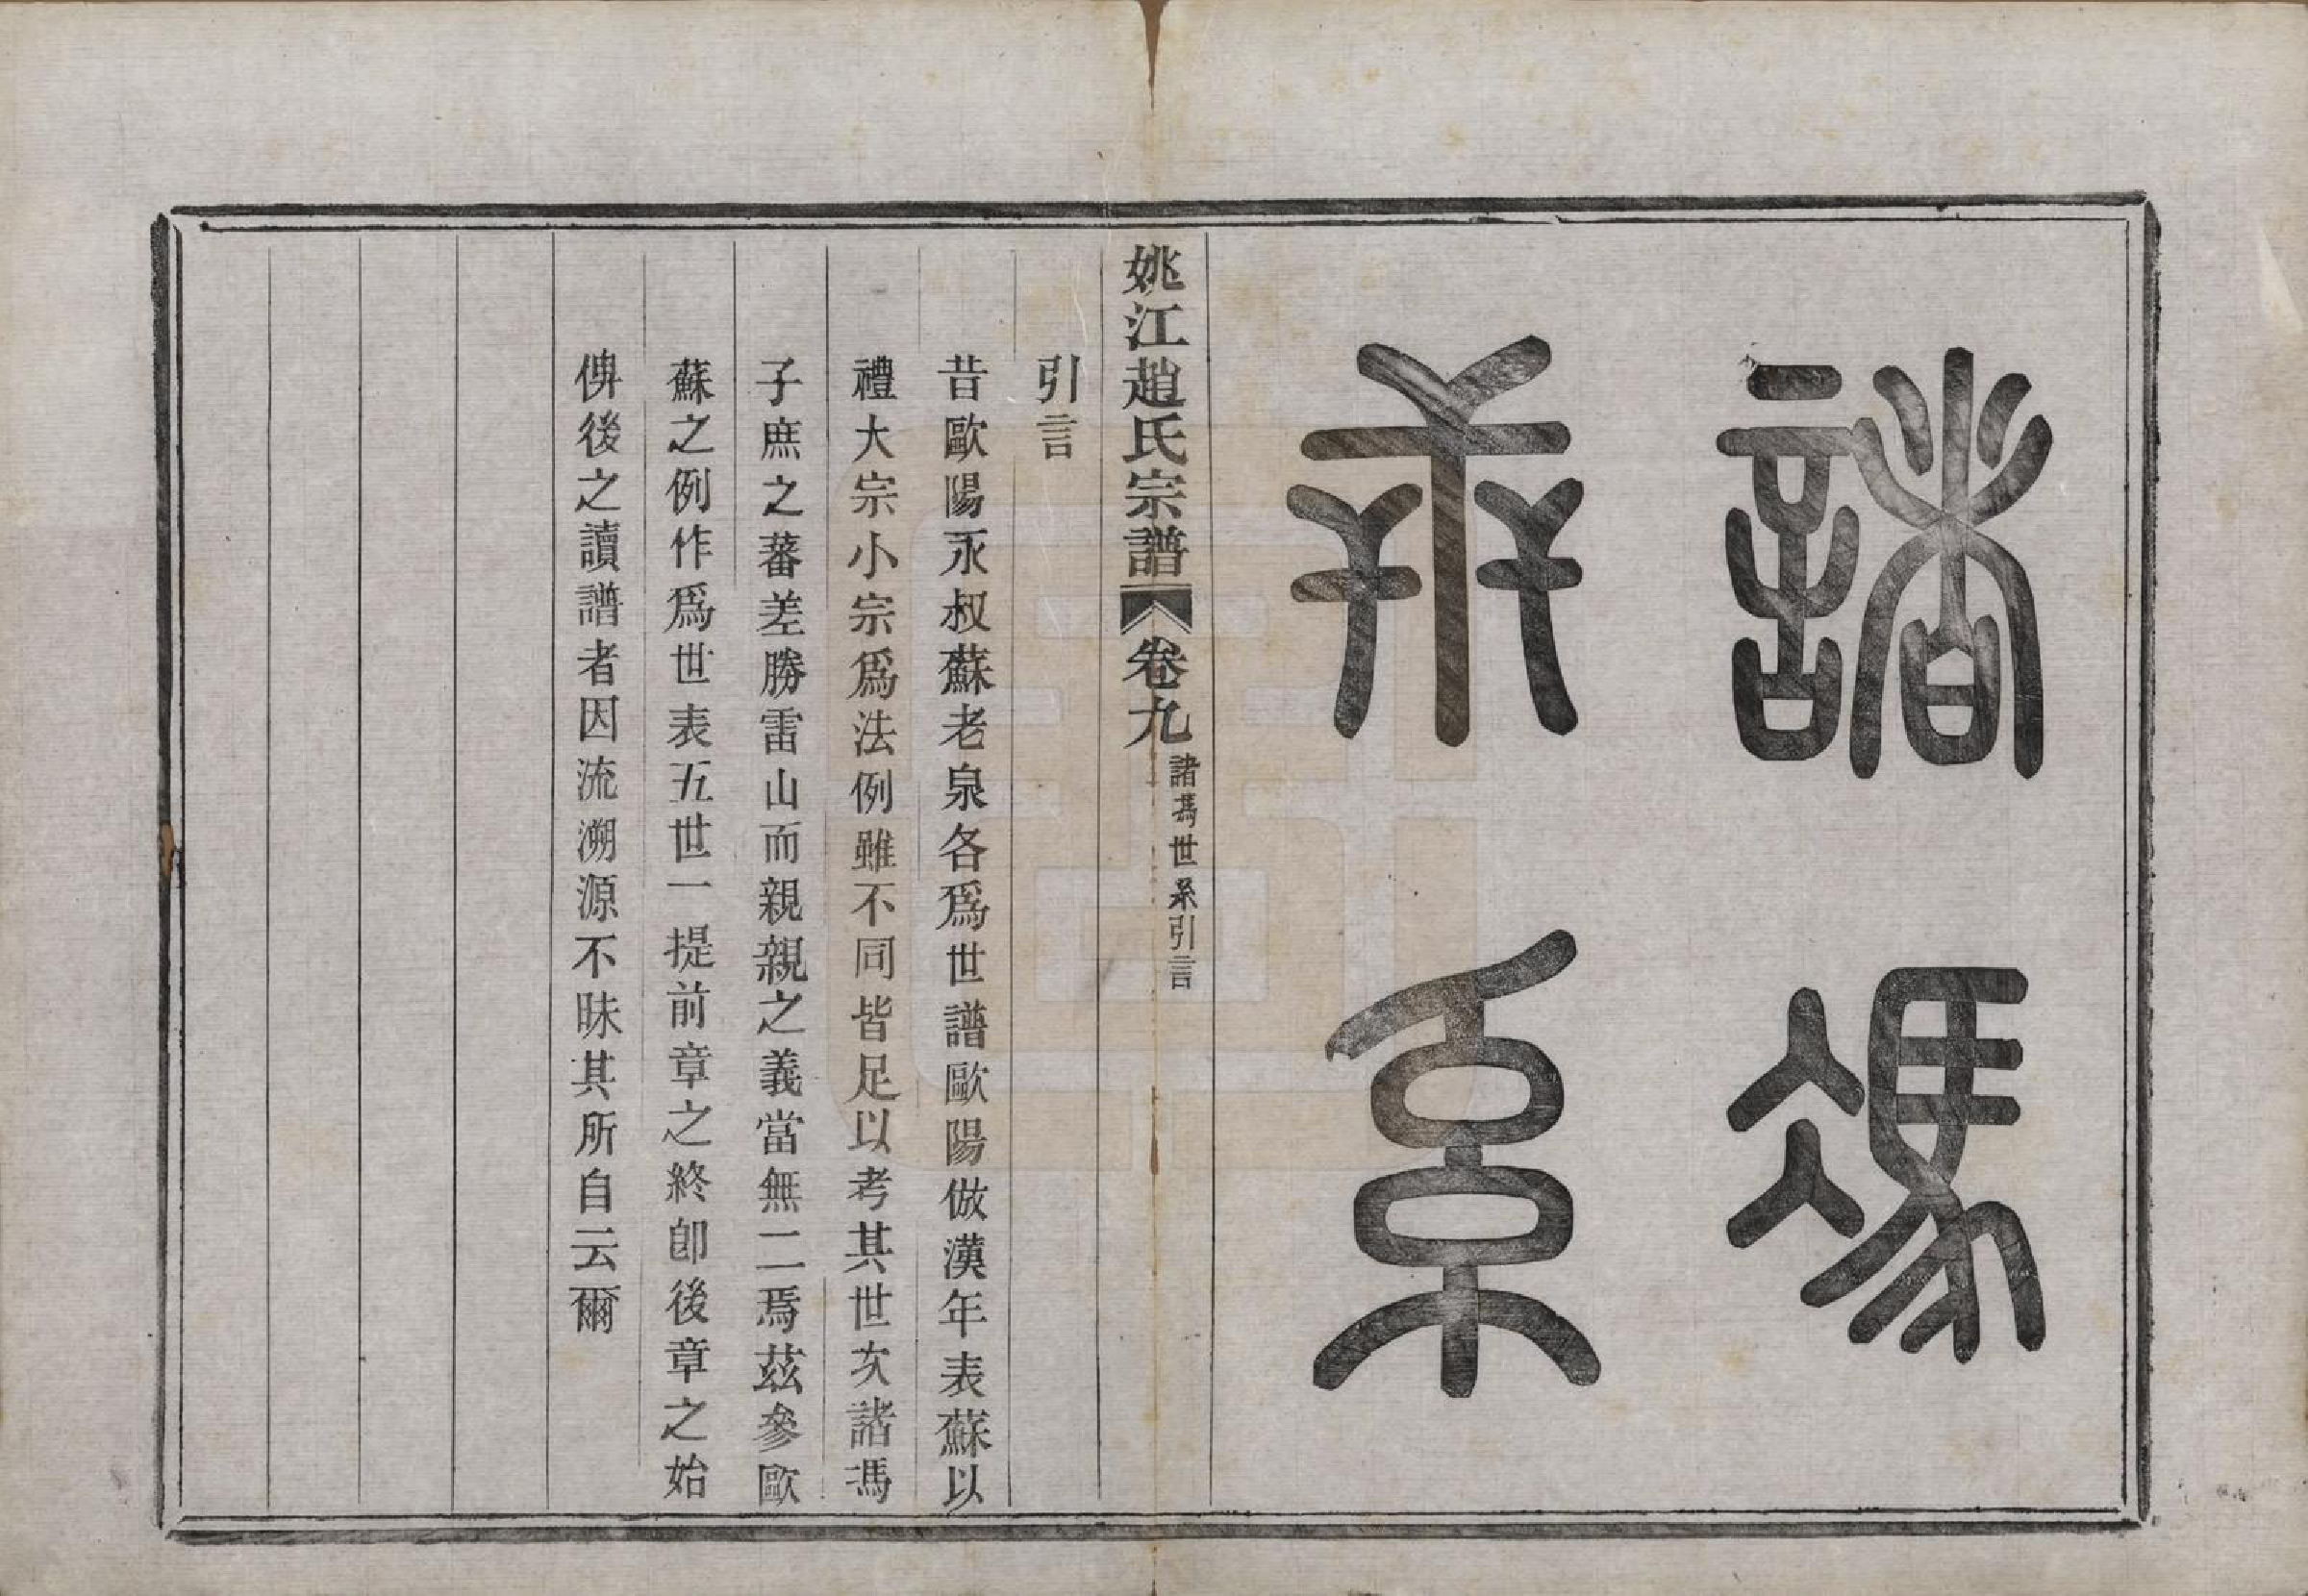 諸馮
世系
姚江趙氏宗譜 卷九 諸馮世系引言
引言
昔歐陽永叔蘇老泉各爲世譜歐陽倣漢年表蘇以
禮大宗小宗爲法例雖不同皆足以考其世次諸馮
子庶之蕃差勝雷山而親親之義當無二焉茲參歐
蘇之例作爲世表五世一提前章之終卽後章之始
俾後之讀譜者因流溯源不昧其所自云爾